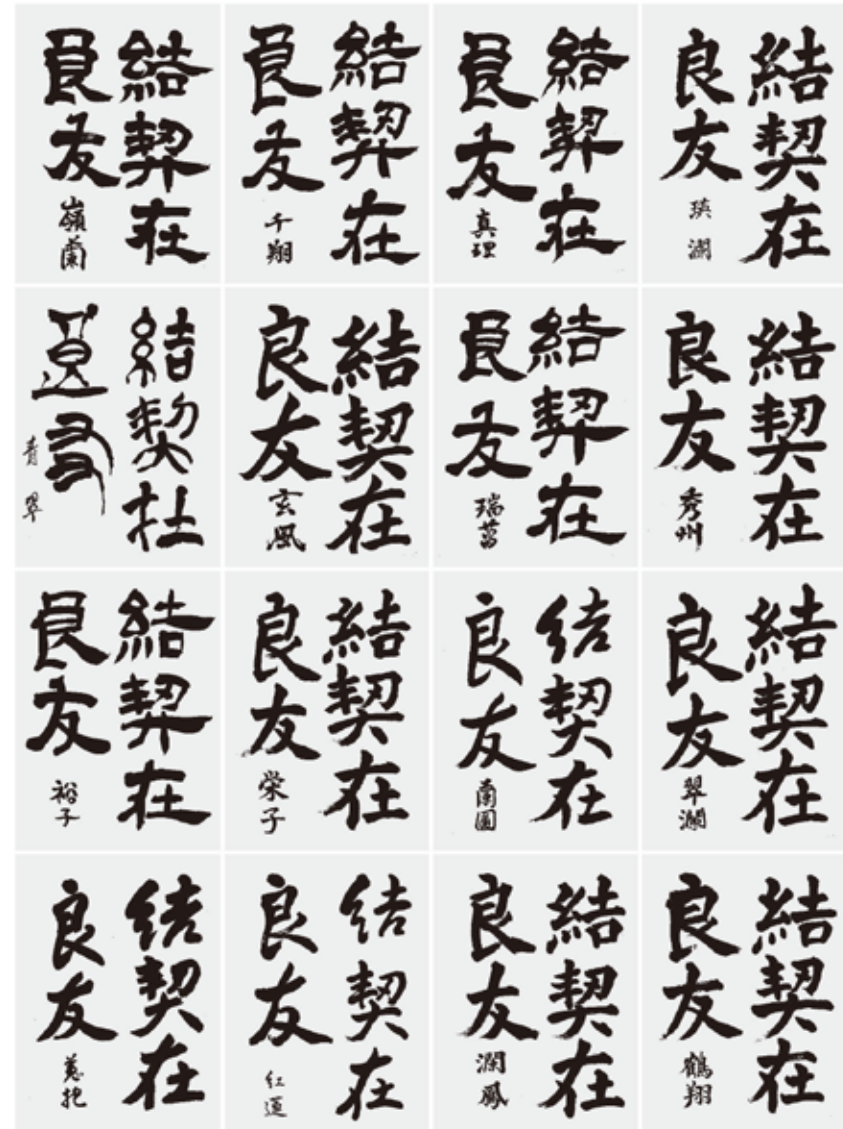 結契在
良友
嶺蘭
結契在
良友
千翔
結契在
良友
真理
結契在
良友
瑛瀾
結契在
良友
青翠
結契在
良友
玄風
結契在
良友
結契在
良友
秀州
結契在
良友
裕子
結契在
良友
栄子
結契在
良友
結契在
良友
翠瀾
結契在
良友
結契在
良友
紅蓮
結契在
良友
瀾鳳
結契在
良友
鶴翔